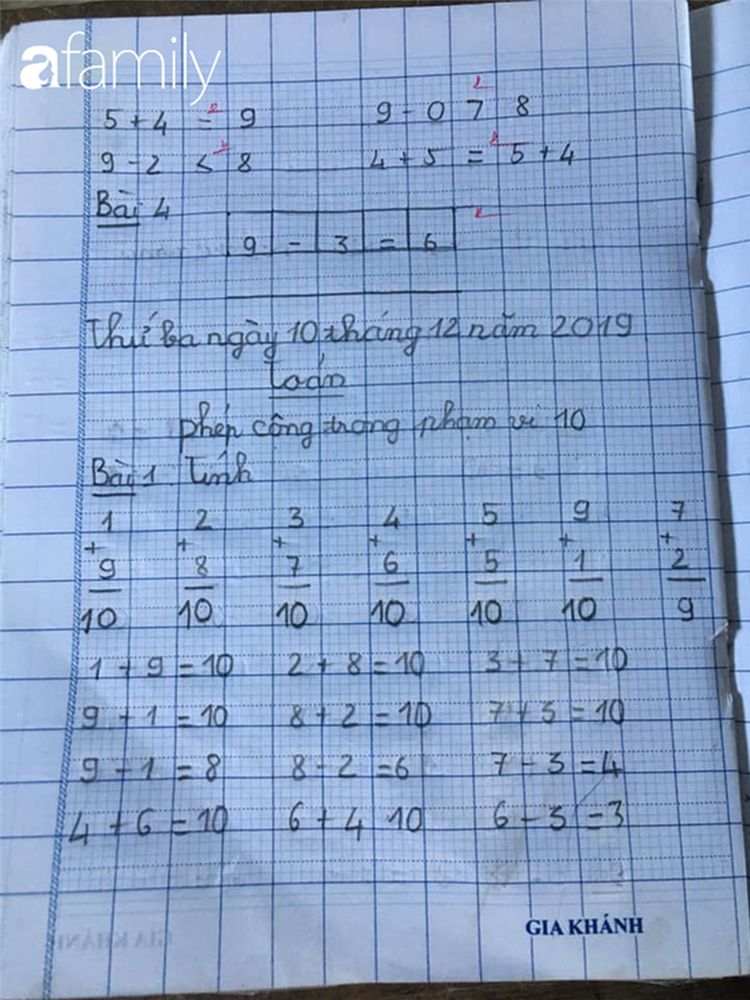 afamily
5 + 4 = 9 9 - 0 7 8
9 - 2 < 8 4 + 5 = 5 + 4
Bài 4
9 - 3 = 6
Thứ ba ngày 10 tháng 12 năm 2019
Toán
phép cộng trong phạm vi 10
Bài 1. Tính
1 2 3 4 5 9 7
+ + + + + + +
9 8 7 6 5 1 2
10 10 10 10 10 10 9
1 + 9 = 10 2 + 8 = 10 3 + 7 = 10
9 + 1 = 10 8 + 2 = 10 7 + 3 = 10
9 - 1 = 8 8 - 2 = 6 7 - 3 = 4
4 + 6 = 10 6 + 4 10 6 - 3 = 3
GIA KHÁNH